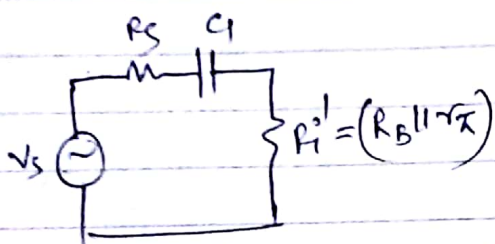 RS C1
VS ~ Ri' = (RB || rπ)